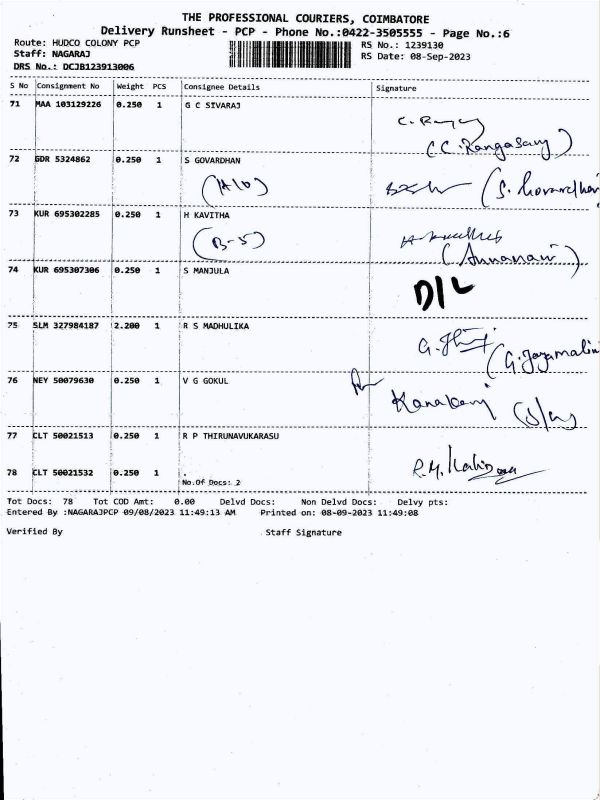 THE PROFESSIONAL COURIERS, COIMBATORE
Delivery Runsheet - PCP - Phone No.:0422-3505555 - Page No.:6
Route: HUDCO COLONY PCP
Staff: NAGARAJ
DRS No.: DCJB123913006
RS No.: 1239130
RS Date: 08-Sep-2023
S No Consignment No Weight PCS Consignee Details Signature
71 MAA 103129226 0.250 1 G C SIVARAJ
(C.Rangasamy)
72 GDR 5324862 0.250 1 S GOVARDHAN
(S. Govardhan
73 KUR 695302285 0.250 1 H KAVITHA
(B-5)
74 KUR 695307306 0.250 1 S MANJULA
D/L
75 SLM 327984187 2.200 1 R S MADHULIKA
(G.Jayamalini
76 NEY 50079630 0.250 1 V G GOKUL
77 CLT 50021513 0.250 1 R P THIRUNAVUKARASU
78 CLT 50021532 0.250 1 .
No.Of Docs: 2
Tot Docs: 78 Tot COD Amt: 0.00 Delvd Docs: Non Delvd Docs: Delvy pts:
Entered By :NAGARAJPCP 09/08/2023 11:49:13 AM Printed on: 08-09-2023 11:49:08
Verified By Staff Signature